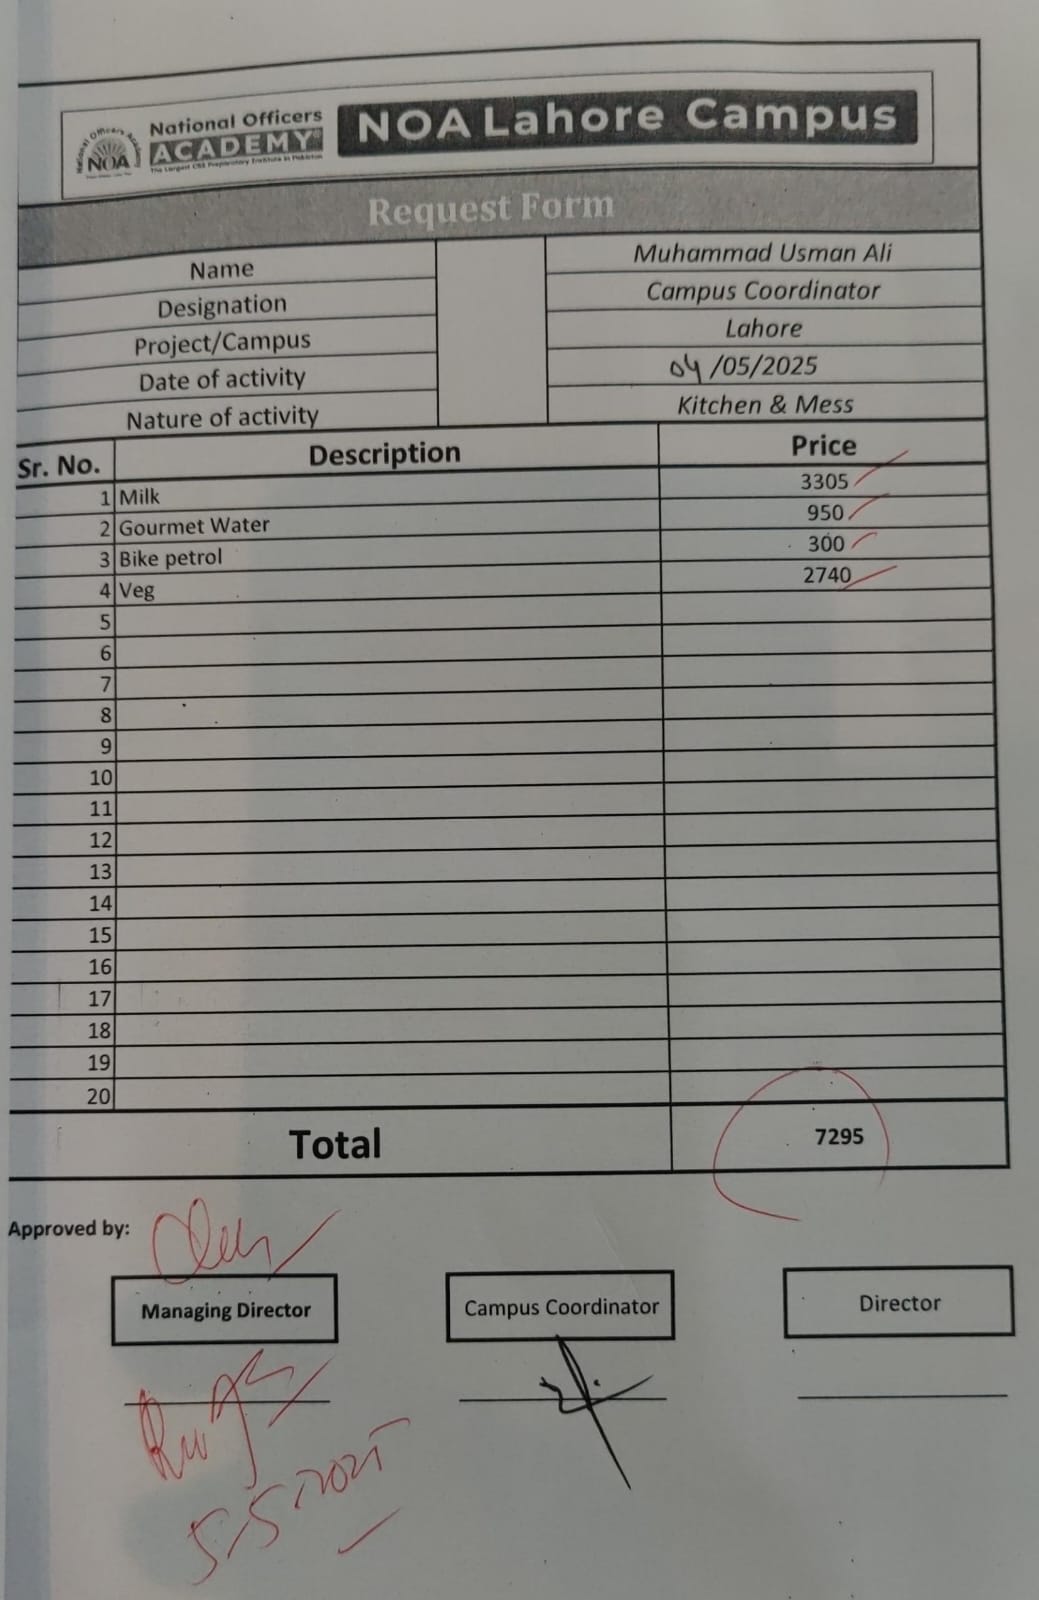 National Officers
ACADEMY
The Largest CSS Preparatory Institute in Pakistan
National Officers Academy
NOA
NOA Lahore Campus
Request Form
Name Muhammad Usman Ali
Designation Campus Coordinator
Project/Campus Lahore
Date of activity 04/05/2025
Nature of activity Kitchen & Mess
Sr. No. Description Price
1 Milk 3305
2 Gourmet Water 950
3 Bike petrol 300
4 Veg 2740
5
6
7
8
9
10
11
12
13
14
15
16
17
18
19
20
Total 7295
Approved by:
Managing Director Campus Coordinator Director
5-5-2025